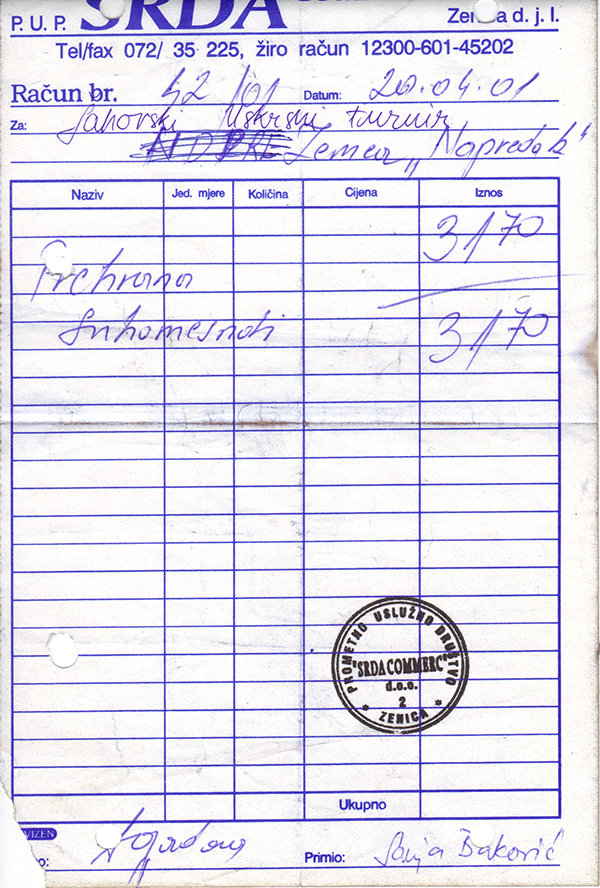 P. U. P. SRDA Zenica d. j. l.
Tel/fax 072/ 35 225, žiro račun 12300-601-45202
Račun br. 42/01 Datum: 20.04.01
Za: Šahovski Uskrsni turnir
Zenica „Napredak“
Naziv Jed. mjere Količina Cijena Iznos
3170
Prehrana
Suhomesnati 3170
PROMETNO USLUŽNO DRUŠTVO
"SRDA COMMERC"
d.o.o.
2
* ZENICA *
Ukupno
VIZEN
Primio: Sanja Baković